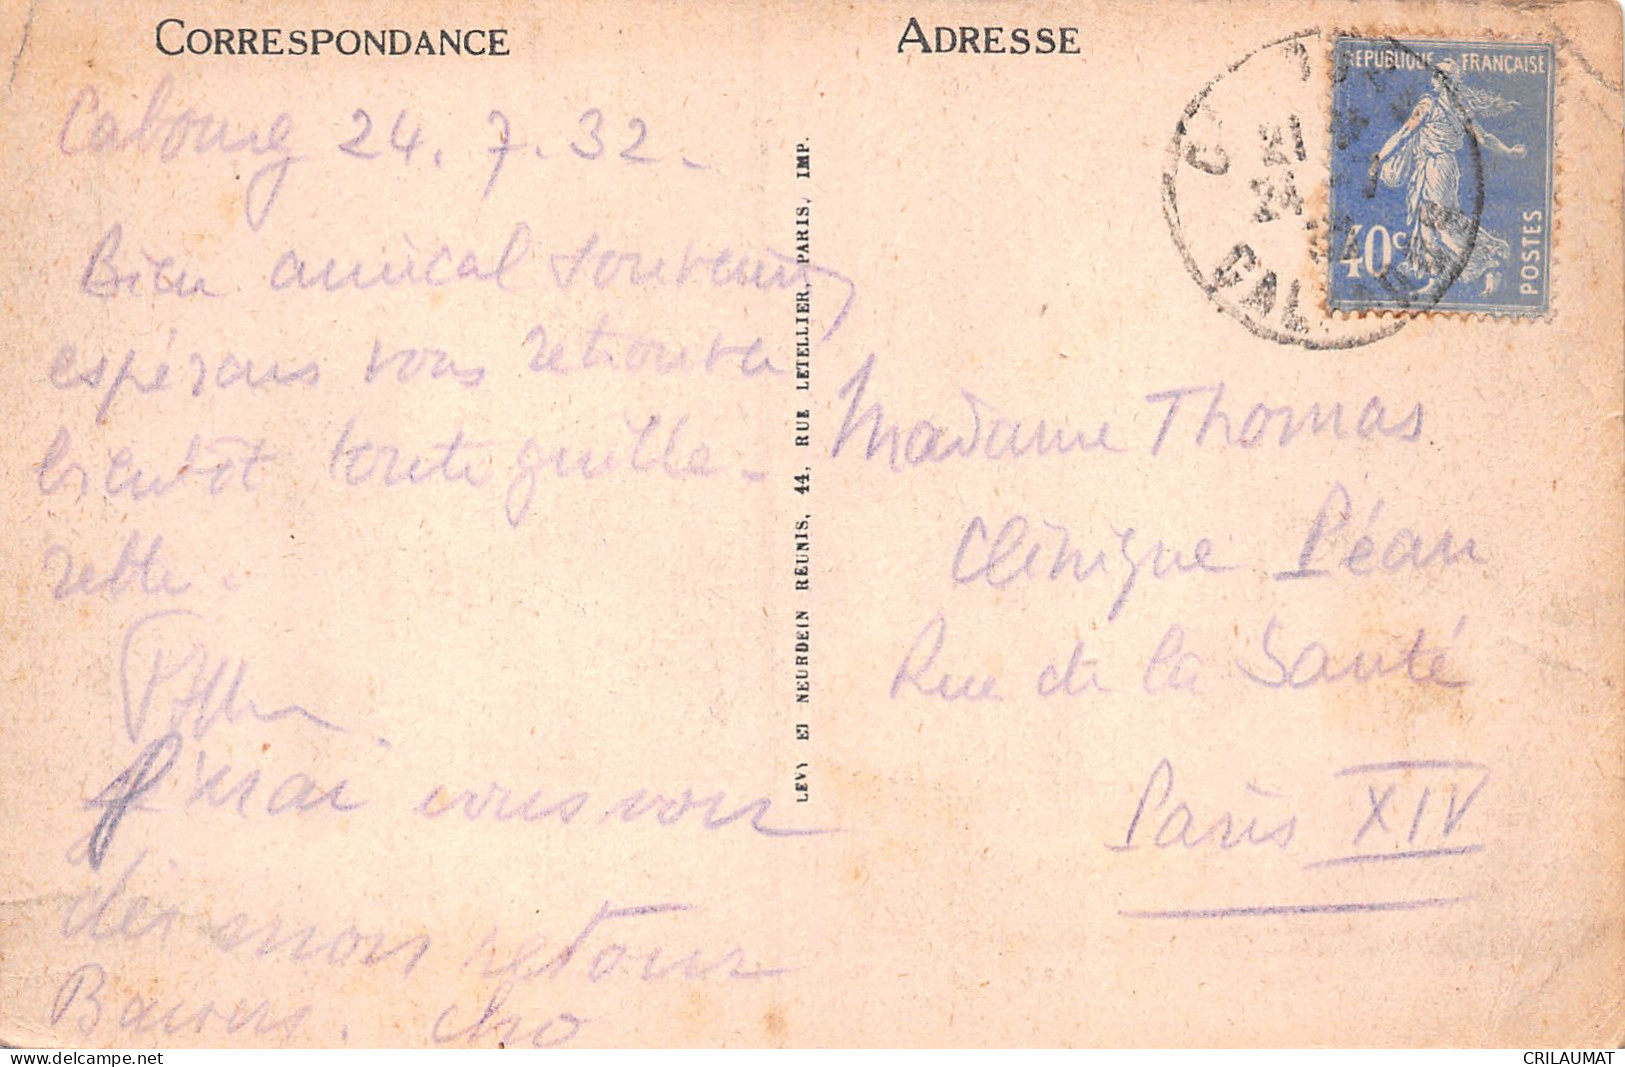 CORRESPONDANCE
Cabourg 24.7.32.
Bien amical souvenir,
espérons vous retrouver
bientôt toute guille-
rette.
J'irai vous voir
dès mon retour
Baisers.
LEVY ET NEURDEIN RÉUNIS, 44, RUE LETELLIER, PARIS, IMP.
ADRESSE
RÉPUBLIQUE FRANÇAISE
40c
POSTES
21
24
CALVADOS
Madame Thomas
Clinique Péan
Rue de la Santé
Paris XIV
CRILAUMAT